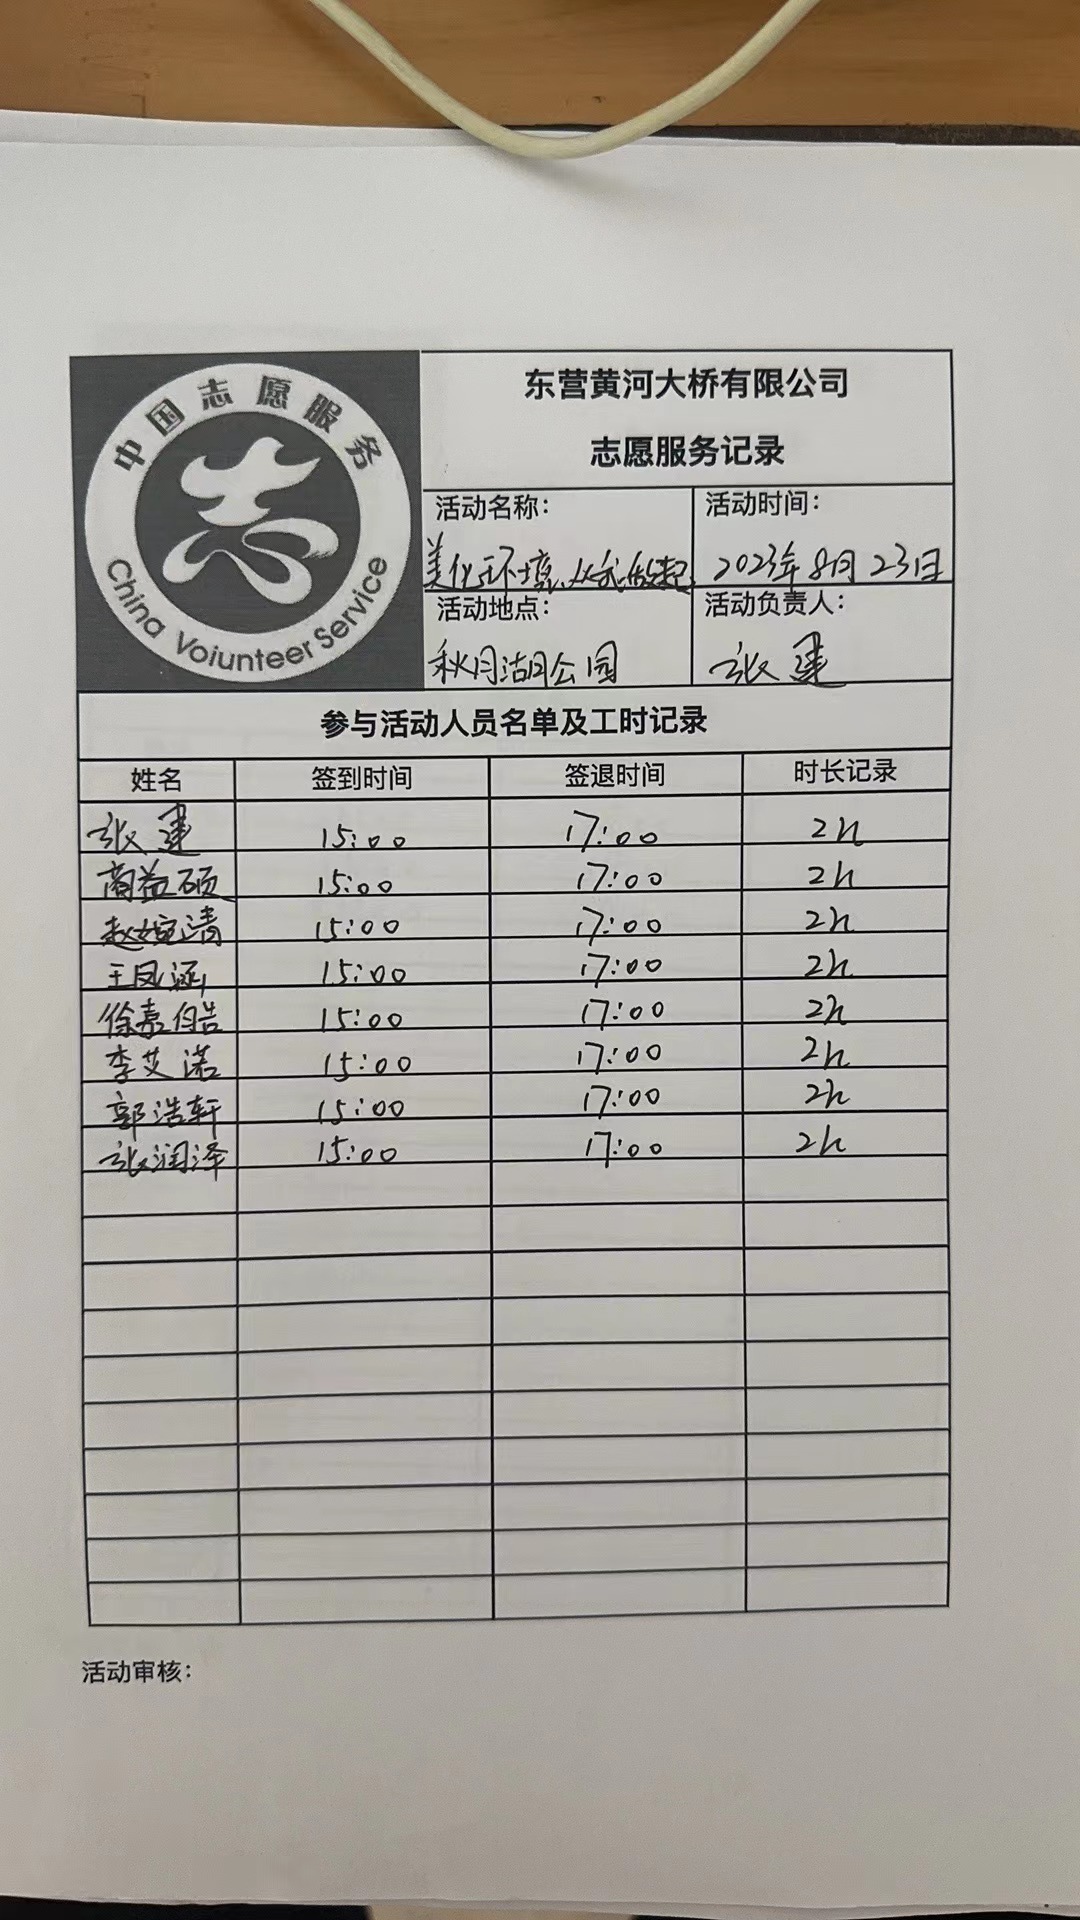 中国志愿服务
China Voiunteer Service
东营黄河大桥有限公司
志愿服务记录
活动名称： 活动时间：
美化环境，从我做起 2023年8月23日
活动地点： 活动负责人：
秋月湖公园 张建
参与活动人员名单及工时记录
姓名 签到时间 签退时间 时长记录
张建 15:00 17:00 2h
商益硕 15:00 17:00 2h
赵婉清 15:00 17:00 2h
王凤涵 15:00 17:00 2h
徐嘉皓 15:00 17:00 2h
李艾诺 15:00 17:00 2h
郭浩轩 15:00 17:00 2h
张润泽 15:00 17:00 2h
活动审核：